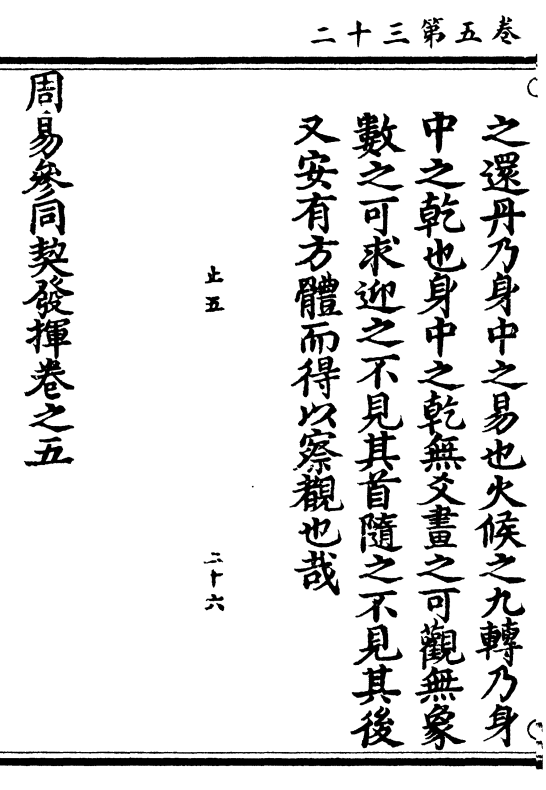 卷五第三十二
之還丹乃身中之易也火候之九轉乃身
中之乾也身中之乾無爻畫之可觀無象
數之可求迎之不見其首隨之不見其後
又安有方體而得以察覩也哉
止五　二十六
周易參同契發揮卷之五